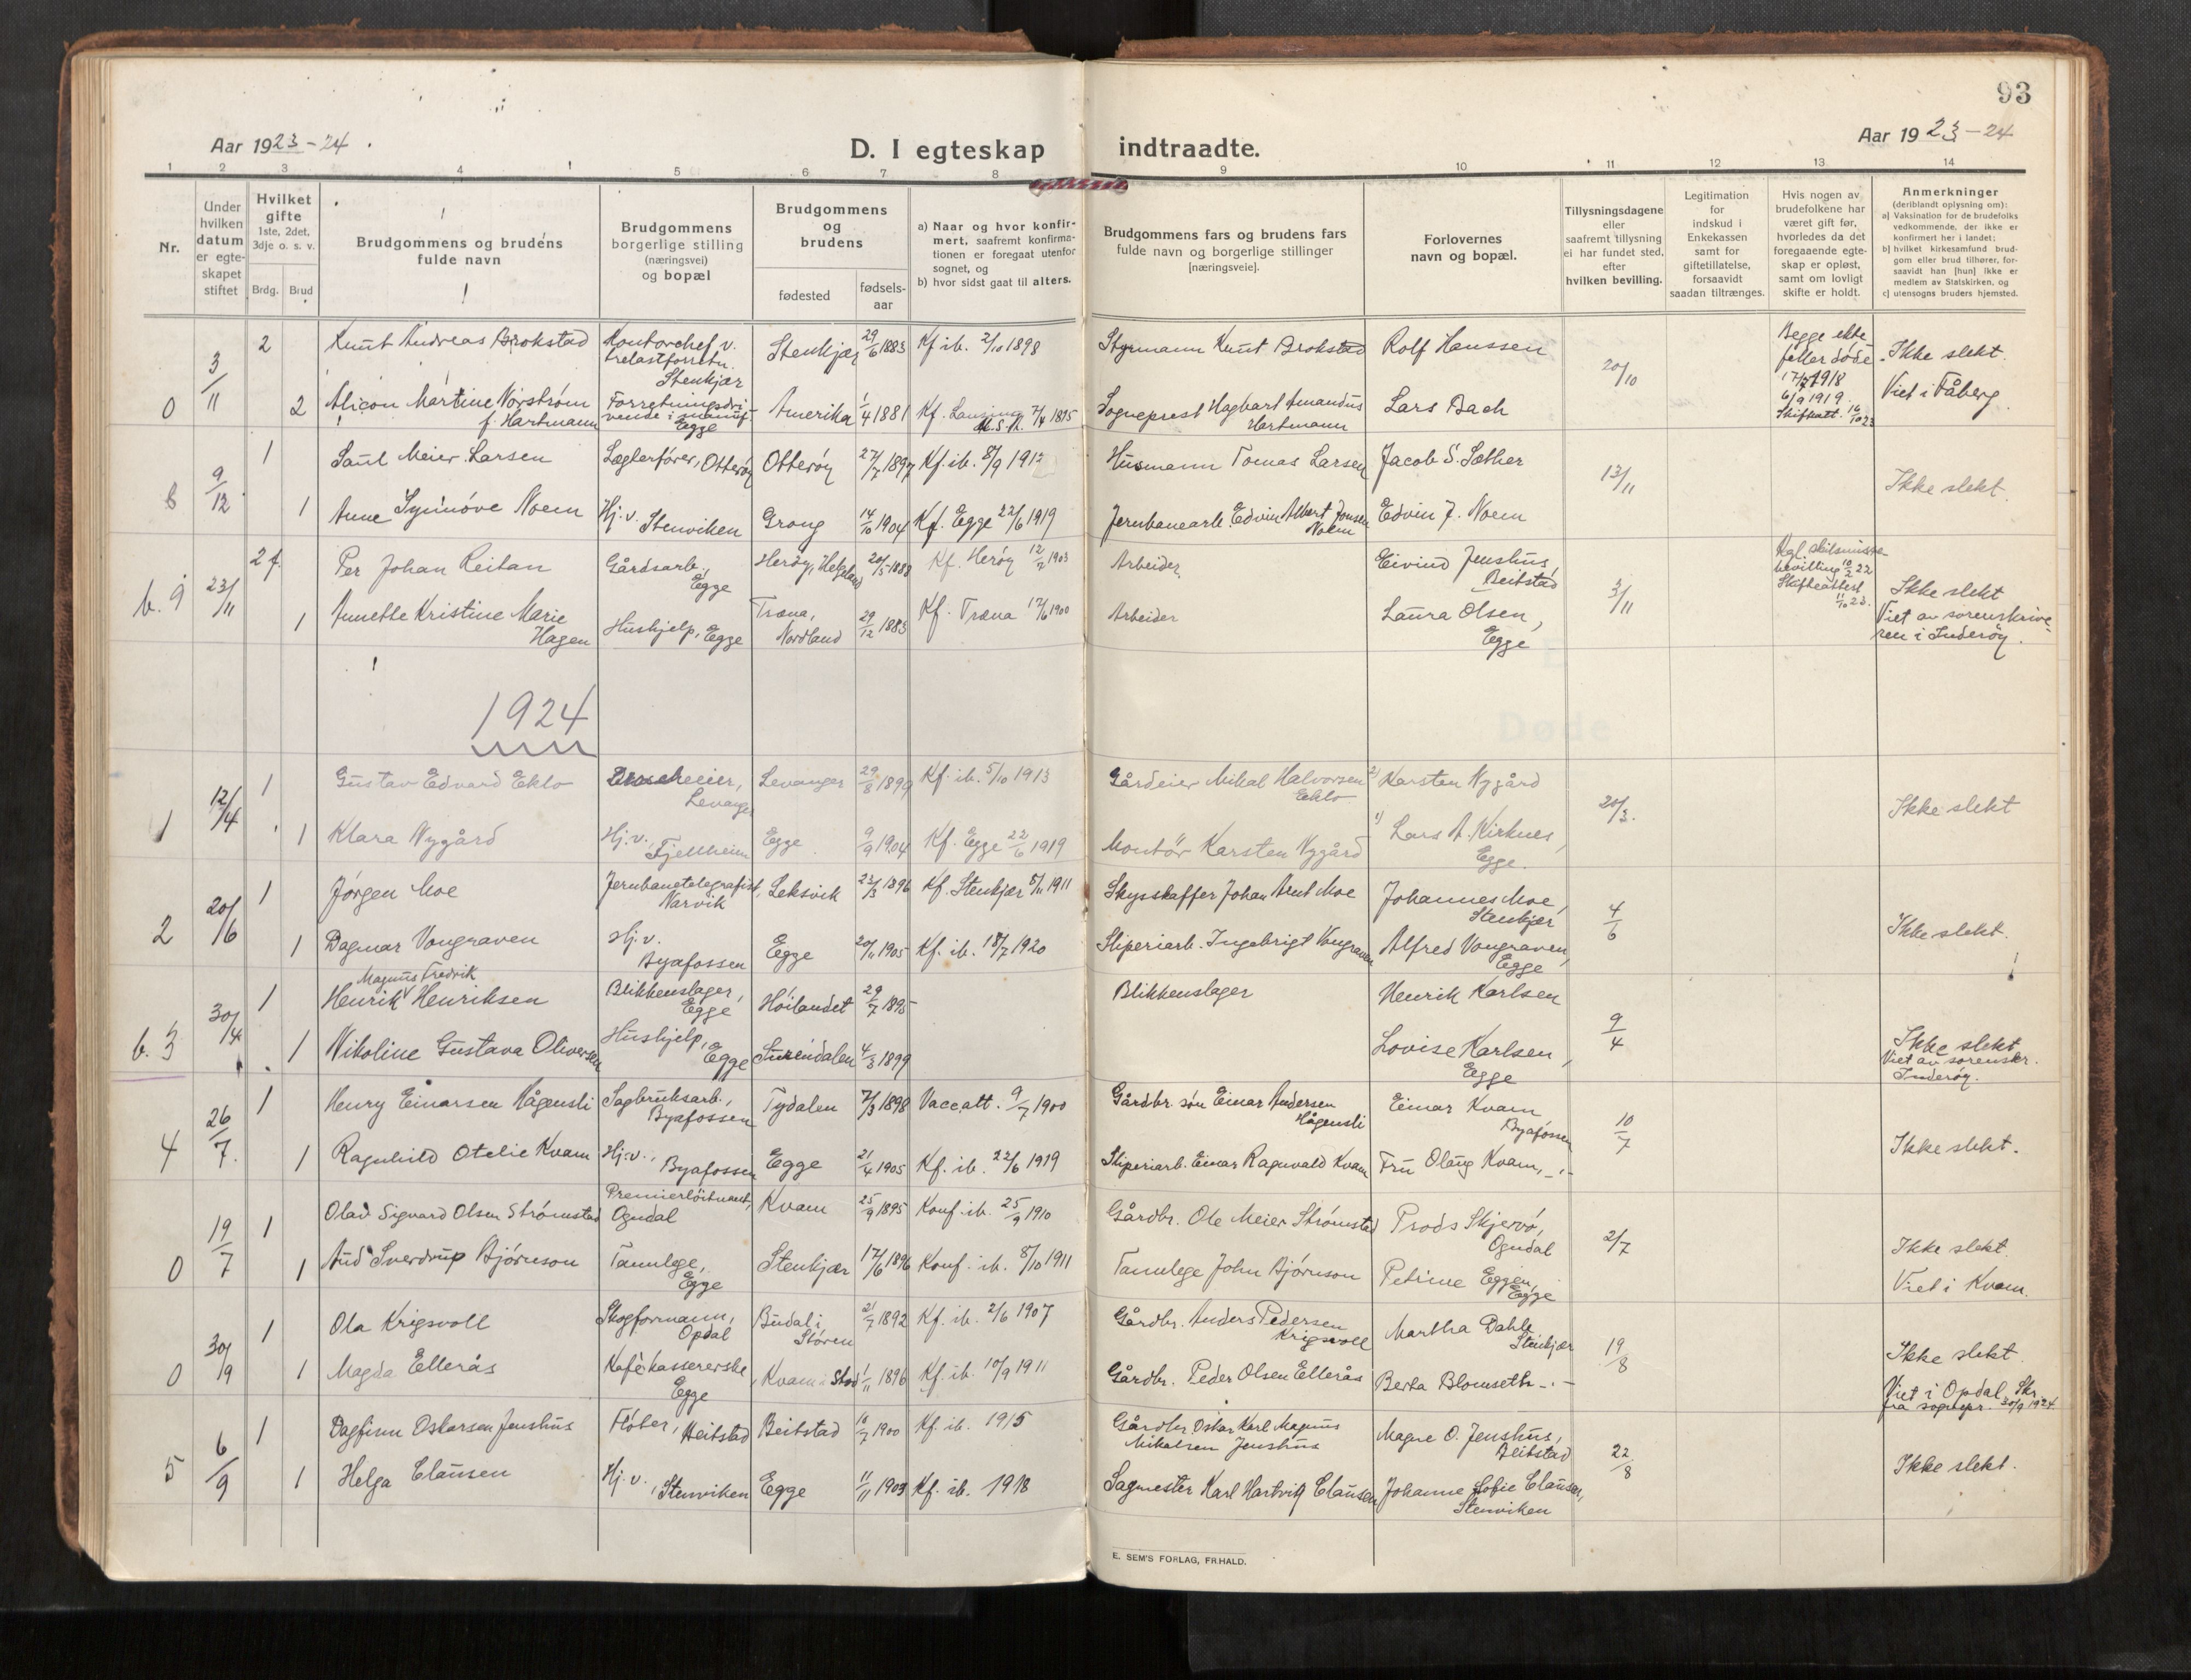 93
Aar 1923-24
D. I egteskap
indtraadte.
Aar 1923-24
1 2 3 4 5 6 7 8 9 10 11 12 13 14
Nr.
Under hvilken datum er egteskapet stiftet
Hvilket gifte
1ste, 2det, 3dje o. s. v.
Brdg. Brud
Brudgommens og brudens fulde navn
Brudgommens borgerlige stilling (næringsvei) og bopæl
Brudgommens og brudens
fødested
fødsels-aar
a) Naar og hvor konfirmert, saafremt konfirmationen er foregaat utenfor sognet, og
b) hvor sidst gaat til alters.
Brudgommens fars og brudens fars
fulde navn og borgerlige stillinger
[næringsveie].
Forlovernes
navn og bopæl.
Tillysningsdagene
eller
saafremt tillysning
ei har fundet sted,
efter
hvilken bevilling.
Legitimation
for
indskud i
Enkekassen
samt for
giftetillatelse,
forsaavidt
saadan tiltrænges.
Hvis nogen av
brudefolkene har
været gift før,
hvorledes da det
foregaaende egte-
skap er opløst,
samt om lovligt
skifte er holdt.
Anmerkninger
(deriblandt oplysning om):
a) Vaksination for de brudefolks
vedkommende, der ikke er
konfirmert her i landet;
b) hvilket kirkesamfund brud-
gom eller brud tilhører, for-
saavidt han [hun] ikke er
medlem av Statskirken, og
c) utensogns bruders hjemsted.
0 3/11 2 Knut Andreas Brokstad Kontorchef v. trelastforretn. Stenkjær Stenkjær 29/6 1883 Kf. ib. 2/10 1898 Styrmann Knut Brokstad Rolf Hanssen 20/10 Begge ektefeller døde 17/7 1918 6/9 1919. Skifteatt. 16/10 23 Ikke slekt.
2 Martine Norstrøm f. Hartmann Forretningsdrivende i manuf. Egge Amerika 1/4 1881 Kf. 7/4 1895 Sogneprest Hagbart Amandus Hartmann Lars Bach Viet i Fåberg
8 9/12 1 Saul Meier Larsen Otterøy Otterøy 27/7 1897 Kf. ib. 8/9 1912 Husmann Tomas Larsen Jacob S. Sæther 13/11 Ikke slekt.
1 Anne Synnøve Noem Hj. v. Stenviken Grong 14/10 1904 Kf. Egge 22/6 1919 Jernbanearb. Edvin Albert Jonsen Noem Edvin J. Noem
b. 9 23/11 2 f. Per Johan Reitan Gårdsarb., Egge Herøy, Helgeland 20/5 1888 Kf. Herøy 12/7 1903 Arbeider Eivind Jenshus, Beitstad 3/11 Kgl. skilsmisse bevilling 10/2 22 Skifteattest 11/10 23. Ikke slekt
1 Annette Kristine Marie Hagen Hushjelp, Egge Træna, Nordland 29/12 1883 Kf. Træna 17/6 1900 Arbeider Laura Olsen, Egge Viet av sorenskriveren i Inderøy.
1924
1 12/4 1 Gustav Edvard Eklo Levanger Levanger 29/8 1899 Kf. ib. 5/10 1913 Gårdeier Mikal Halvorsen Eklo 2) Karsten Nygård 20/3. Ikke slekt
1 Klara Nygård Hj. v., Fjellheim Egge 9/9 1904 Kf. Egge 22/6 1919 Montör Karsten Nygård 1) Lars A. Kirknes, Egge.
2 20/6 1 Jørgen Moe Jernbanetelegrafist, Narvik Leksvik 23/3 1896 Kf. Stenkjær 5/11 1911 Skysskaffer Johan Arnt Moe Johannes Moe, Stenkjær 4/6 Ikke slekt.
1 Dagmar Vongraven Hj. v. Byafossen Egge 20/11 1905 Kf. ib. 18/7 1920 Sliperiarb. Ingebrigt Vongraven Alfred Vongraven, Egge
b. 3 30/4 1 Henrik Magnus Fredrik Henriksen Blikkenslager, Egge Høilandet 29/7 1895 Blikkenslager Henrik Karlsen 9/4 Ikke slekt
1 Nikoline Gustava Oliversen Hushjelp, Egge Surendalen 4/3 1899 Lovise Karlsen, Egge Viet av sorenskr. Inderøy.
4 26/7. 1 Henry Einarsen Hågensli Sagbruksarb., Byafossen Tydalen 7/3 1898 Vacc.att. 9/7 1900 Gårdbr. søn Einar Andersen Hågensli Einar Kvam Byafossen 10/7 Ikke slekt.
1 Ragnhild Otelie Kvam Hj. v., Byafossen Egge 21/4 1905 Kf. ib. 22/6 1919 Sliperiarb. Einar Ragnvald Kvam Fru Olaug Kvam, -"-
0 19/7 1 Olav Sigvard Olsen Strømstad Premierløitnant, Ogndal Kvam 25/9 1895 Konf. ib. 25/9 1910 Gårdbr. Ole Meier Strømstad Skjervø, Ogndal 2/7 Ikke slekt.
1 Aud Sverdrup Bjørnson Tannlege, Egge Stenkjær 17/6 1896 Konf. ib. 8/10 1911 Tannlege John Bjørnson Petrine Eggen, Egge Viet i Kvam.
0 30/9 1 Ola Krigsvoll Skogformann, Opdal Budal i Støren 21/7 1892 Kf. ib. 2/6 1907 Gårdbr. Anders Pedersen Krigsvoll Martha Dahle Stenkjær 19/8 Ikke slekt.
1 Magda Ellerås Kafékassererske, Egge Kvam i Stod 1/11 1896 Kf. ib. 10/9 1911 Gårdbr. Peder Olsen Ellerås Berta Blomseth -"- Viet i Opdal. Skr. fra sognepr. 30/9 1924.
5 6/9 1 Dagfinn Oskarsen Jenshus Fløter, Beitstad Beitstad 16/7 1900 Kf. ib. 1915 Gårdbr. Oskar Karl Magnus Mikalsen Jenshus Magne O. Jenshus, Beitstad 22/8 Ikke slekt.
1 Helga Clausen Hj. v., Stenviken Egge 11/11 1903 Kf. ib. 1918 Sagmester Karl Hartvig Clausen Johanne Sofie Clausen, Stenviken
E. SEM'S FORLAG, FR.HALD.